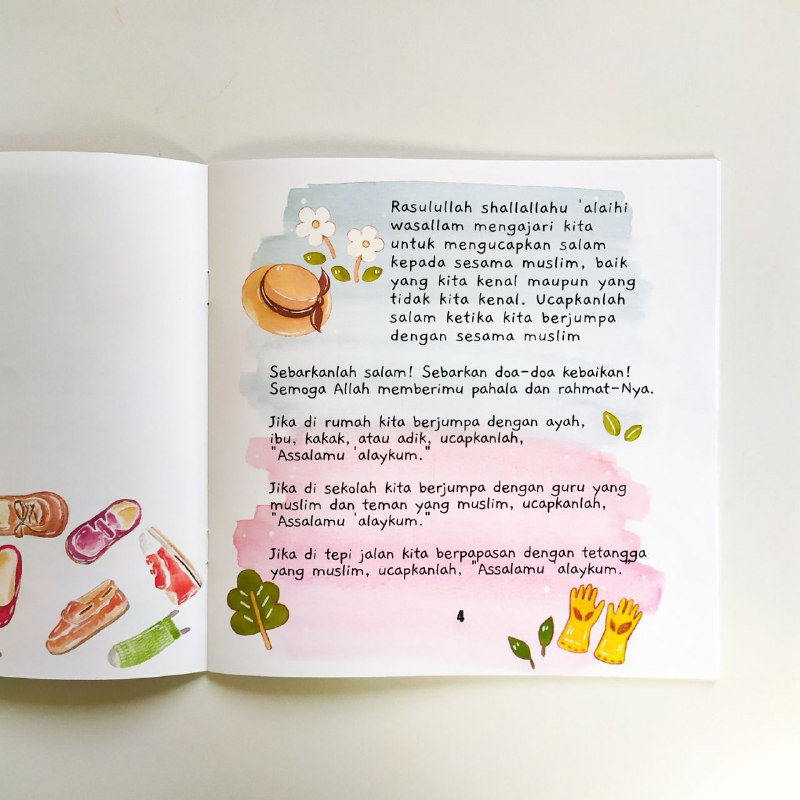 Rasulullah shallallahu 'alaihi
wasallam mengajari kita
untuk mengucapkan salam
kepada sesama muslim, baik
yang kita kenal maupun yang
tidak kita kenal. Ucapkanlah
salam ketika kita berjumpa
dengan sesama muslim
Sebarkanlah salam! Sebarkan doa-doa kebaikan!
Semoga Allah memberimu pahala dan rahmat-Nya.
Jika di rumah kita berjumpa dengan ayah,
ibu, kakak, atau adik, ucapkanlah,
"Assalamu 'alaykum."
Jika di sekolah kita berjumpa dengan guru yang
muslim dan teman yang muslim, ucapkanlah,
"Assalamu 'alaykum."
Jika di tepi jalan kita berpapasan dengan tetangga
yang muslim, ucapkanlah, "Assalamu 'alaykum."
4